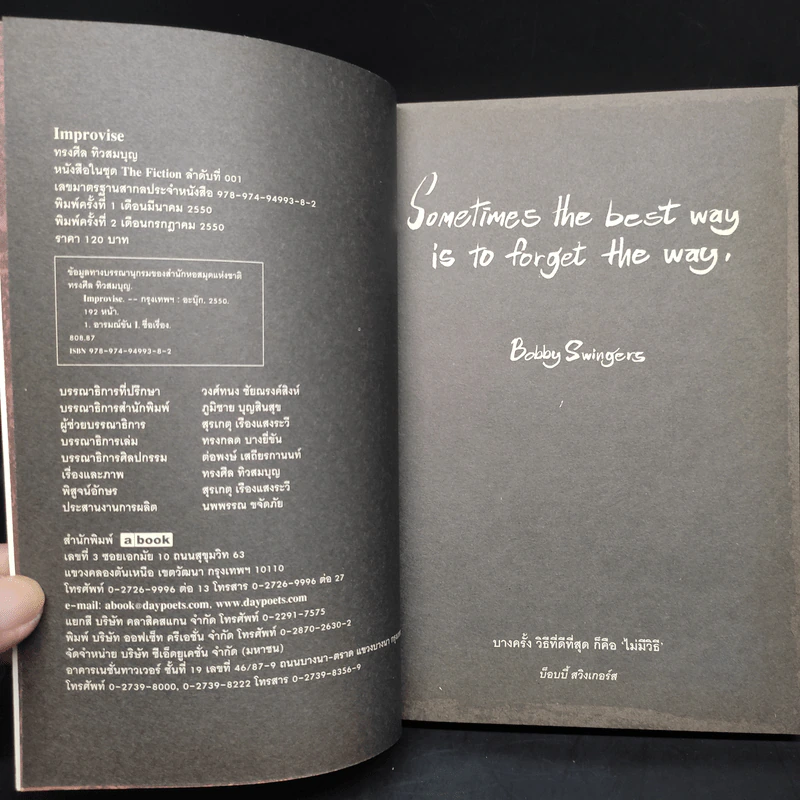 Improvise
ทรงศีล ทิวสมบุญ
หนังสือในชุด The Fiction ลำดับที่ 001
เลขมาตรฐานสากลประจำหนังสือ 978-974-94993-8-2
พิมพ์ครั้งที่ 1 เดือนมีนาคม 2550
พิมพ์ครั้งที่ 2 เดือนกรกฎาคม 2550
ราคา 120 บาท
ข้อมูลทางบรรณานุกรมของสำนักหอสมุดแห่งชาติ
ทรงศีล ทิวสมบุญ.
Improvise. -- กรุงเทพฯ : อะบุ๊ก, 2550.
192 หน้า.
1. อารมณ์ขัน I. ชื่อเรื่อง.
808.87
ISBN 978-974-94993-8-2
บรรณาธิการที่ปรึกษา วงศ์ทนง ชัยณรงค์สิงห์
บรรณาธิการสำนักพิมพ์ ภูมิชาย บุญสินสุข
ผู้ช่วยบรรณาธิการ สุรเกตุ เรืองแสงระวี
บรรณาธิการเล่ม ทรงกลด บางยี่ขัน
บรรณาธิการศิลปกรรม ต่อพงษ์ เสถียรกานนท์
เรื่องและภาพ ทรงศีล ทิวสมบุญ
พิสูจน์อักษร สุรเกตุ เรืองแสงระวี
ประสานงานการผลิต นพพรรณ ขจัดภัย
สำนักพิมพ์ a book
เลขที่ 3 ซอยเอกมัย 10 ถนนสุขุมวิท 63
แขวงคลองตันเหนือ เขตวัฒนา กรุงเทพฯ 10110
โทรศัพท์ 0-2726-9996 ต่อ 13 โทรสาร 0-2726-9996 ต่อ 27
e-mail: abook@daypoets.com, www.daypoets.com
แยกสี บริษัท คลาสิคสแกน จำกัด โทรศัพท์ 0-2291-7575
พิมพ์ บริษัท ออฟเซ็ท ครีเอชั่น จำกัด โทรศัพท์ 0-2870-2630-2
จัดจำหน่าย บริษัท ซีเอ็ดยูเคชั่น จำกัด (มหาชน)
อาคารเนชั่นทาวเวอร์ ชั้นที่ 19 เลขที่ 46/87-9 ถนนบางนา-ตราด แขวงบางนา
โทรศัพท์ 0-2739-8000, 0-2739-8222 โทรสาร 0-2739-8356-9
Sometimes the best way
is to forget the way.
Bobby Swingers
บางครั้ง วิธีที่ดีที่สุด ก็คือ 'ไม่มีวิธี'
บ็อบบี้ สวิงเกอร์ส